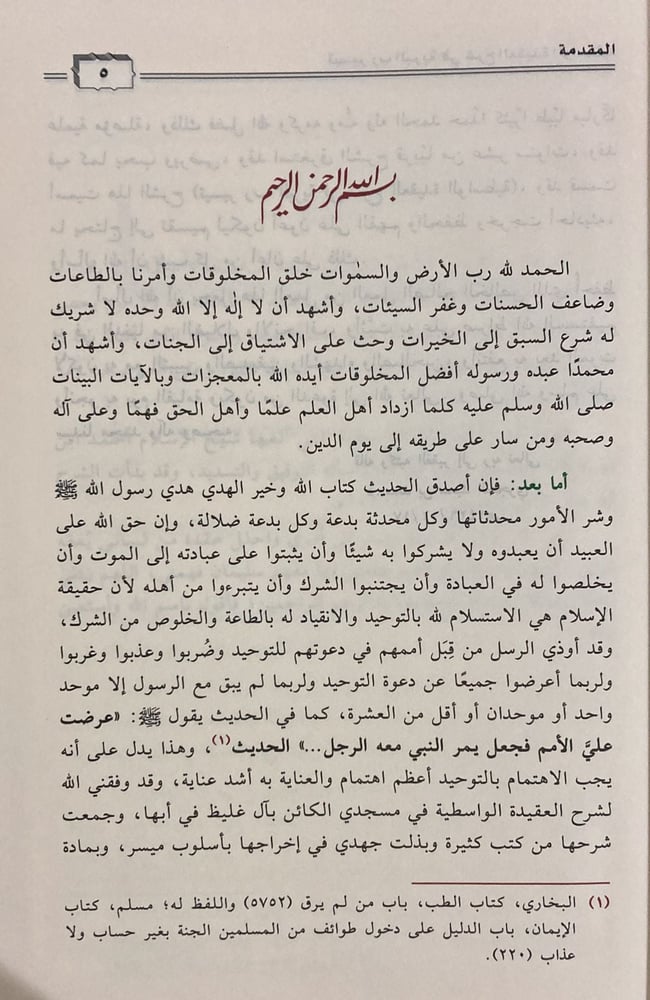 المقدمة
٥
بسم الله الرحمن الرحيم
الحمد لله رب الأرض والسمٰوات خلق المخلوقات وأمرنا بالطاعات
وضاعف الحسنات وغفر السيئات، وأشهد أن لا إلٰه إلا الله وحده لا شريك
له شرع السبق إلى الخيرات وحث على الاشتياق إلى الجنات، وأشهد أن
محمدًا عبده ورسوله أفضل المخلوقات أيده الله بالمعجزات وبالآيات البينات
صلى الله وسلم عليه كلما ازداد أهل العلم علمًا وأهل الحق فهمًا وعلى آله
وصحبه ومن سار على طريقه إلى يوم الدين.
أما بعد: فإن أصدق الحديث كتاب الله وخير الهدي هدي رسول الله ﷺ
وشر الأمور محدثاتها وكل محدثة بدعة وكل بدعة ضلالة، وإن حق الله على
العبيد أن يعبدوه ولا يشركوا به شيئًا وأن يثبتوا على عبادته إلى الموت وأن
يخلصوا له في العبادة وأن يجتنبوا الشرك وأن يتبرءوا من أهله لأن حقيقة
الإسلام هي الاستسلام لله بالتوحيد والانقياد له بالطاعة والخلوص من الشرك،
وقد أوذي الرسل من قِبَل أممهم في دعوتهم للتوحيد وضُربوا وعذبوا وغربوا
ولربما أعرضوا جميعًا عن دعوة التوحيد ولربما لم يبق مع الرسول إلا موحد
واحد أو موحدان أو أقل من العشرة، كما في الحديث يقول ﷺ: «عرضت
عليَّ الأمم فجعل يمر النبي معه الرجل...» الحديث(١)، وهذا يدل على أنه
يجب الاهتمام بالتوحيد أعظم اهتمام والعناية به أشد عناية، وقد وفقني الله
لشرح العقيدة الواسطية في مسجدي الكائن بآل غليظ في أبها، وجمعت
شرحها من كتب كثيرة وبذلت جهدي في إخراجها بأسلوب ميسر، وبمادة
(١) البخاري، كتاب الطب، باب من لم يرق (٥٧٥٢) واللفظ له؛ مسلم، كتاب
الإيمان، باب الدليل على دخول طوائف من المسلمين الجنة بغير حساب ولا
عذاب (٢٢٠).